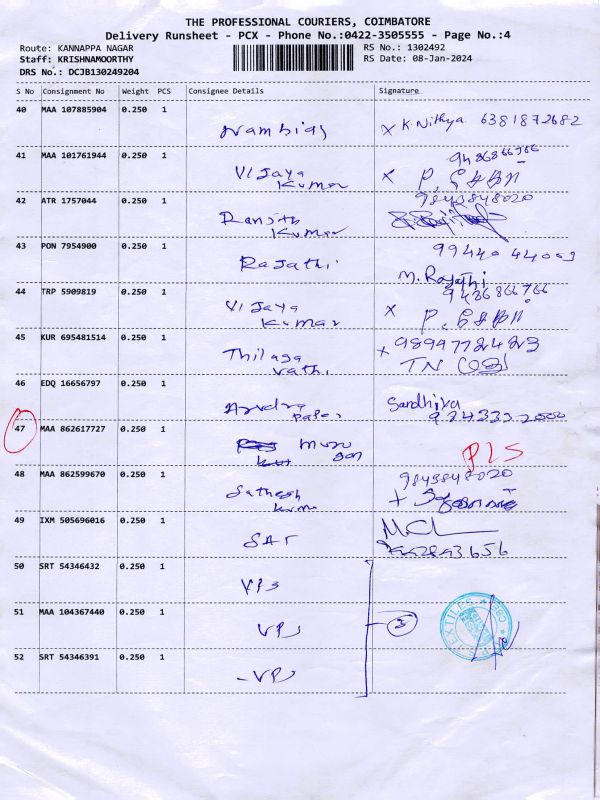 THE PROFESSIONAL COURIERS, COIMBATORE
Delivery Runsheet - PCX - Phone No.:0422-3505555 - Page No.:4
Route: KANNAPPA NAGAR RS No.: 1302492
Staff: KRISHNAMOORTHY RS Date: 08-Jan-2024
DRS No.: DCJB130249204
S No Consignment No Weight PCS Consignee Details Signature
40 MAA 107885904 0.250 1 Nambiar x K. Nithya 6381872682
41 MAA 101761944 0.250 1 Vijaya Kumar x 9486866766
42 ATR 1757044 0.250 1 Ranjith Kumar 9843848020
43 PON 7954900 0.250 1 Rajathi 99440 44003
M. Rajathi
44 TRP 5909819 0.250 1 Vijaya Kumar x 9486866766
45 KUR 695481514 0.250 1 Thilaga vathi + 98947784823
TN
46 EDQ 16656797 0.250 1 Paper Sandhiya
47 MAA 862617727 0.250 1 Muru gan PIS
48 MAA 862599670 0.250 1 Sathesh Kumar 9843848020
49 IXM 505696016 0.250 1 SAT
50 SRT 54346432 0.250 1 VPS
51 MAA 104367440 0.250 1 VPS 3
52 SRT 54346391 0.250 1 -VPS